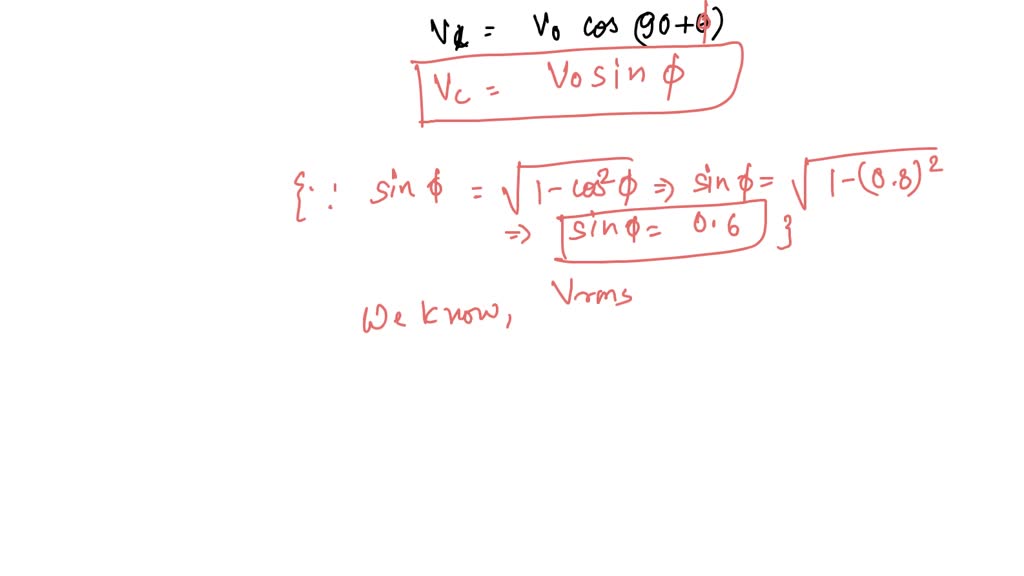 Vc = Vo cos (90+ϕ)
Vc = Vo sin ϕ
{∵ sin ϕ = √1-cos²ϕ ⇒ sin ϕ = √1-(0.8)²
⇒ sin ϕ = 0.6 }
We know, Vrms